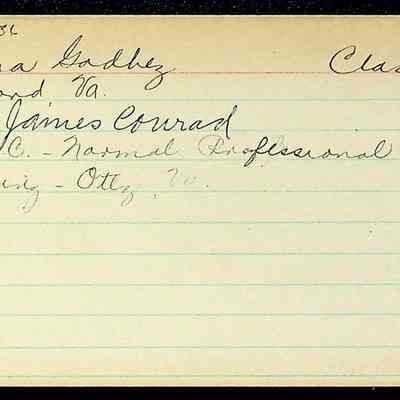 36
na Godbey Clas
ord Va.
James Conrad
C. - Normal Professional
ing - Otty, Va.